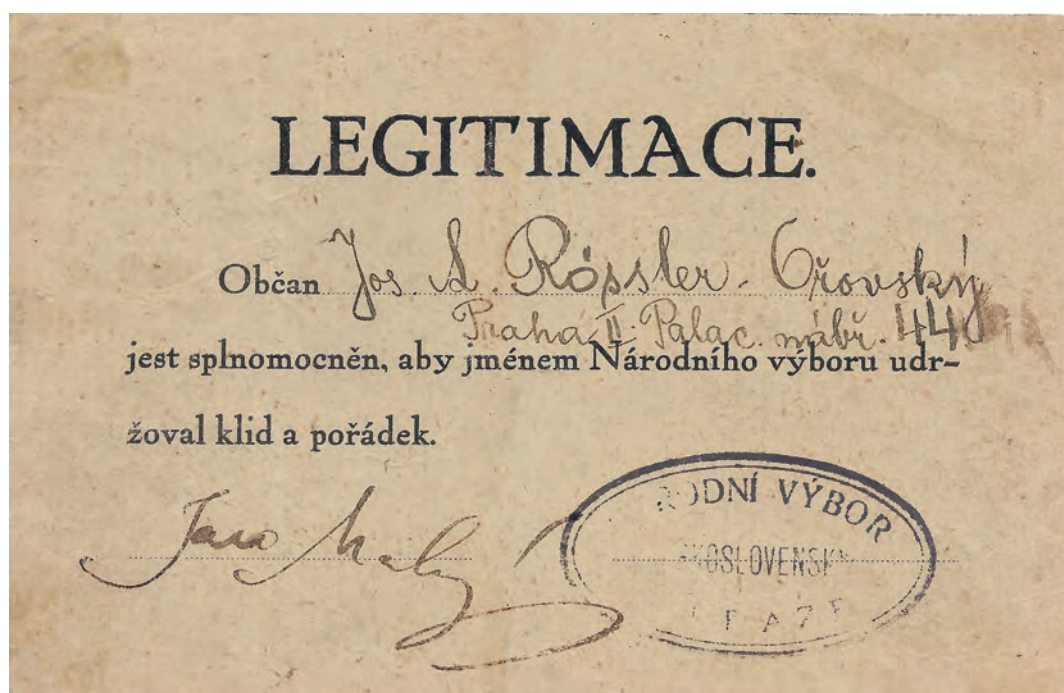 LEGITIMACE.
Občan Jos. A. Rössler-Ořovský
Praha II. Palac. nábř. 44
jest splnomocněn, aby jménem Národního výboru udr-
žoval klid a pořádek.
RODNÍ VÝBOR
OSLOVENSK